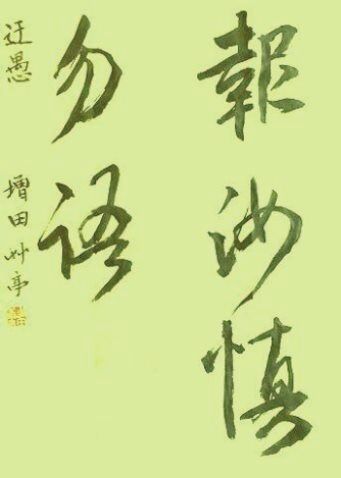 報汝慎
勿語
迂愚 増田艸亭